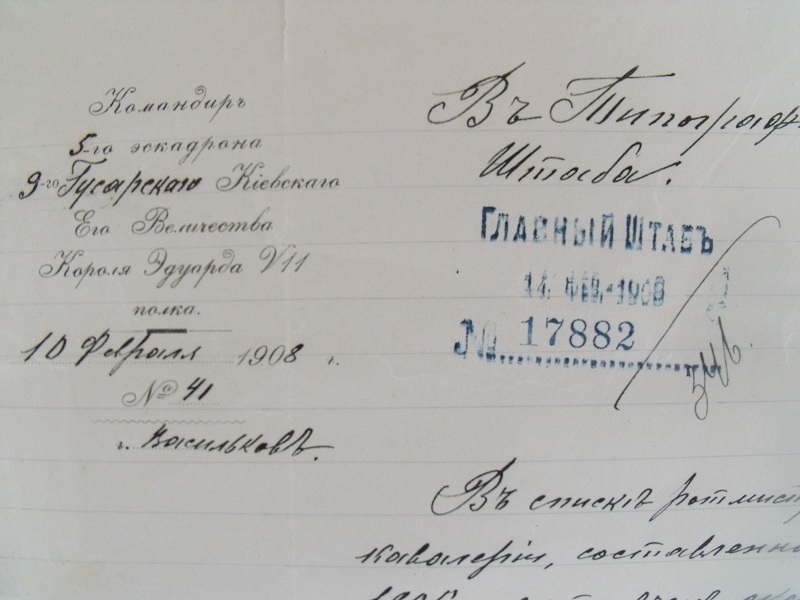 Командиръ
5-го эскадрона
9-го Гусарскаго Кіевскаго
Его Величества
Короля Эдуарда VII
полка.
10 Февраля 1908 г.
№ 41
г. Васильковъ.
Въ Типограф
Штаба.
ГЛАВНЫЙ ШТАБЪ
14 ФЕВ. 1908
№ 17882
Въ спискѣ ротмист
кавалеріи, составленно